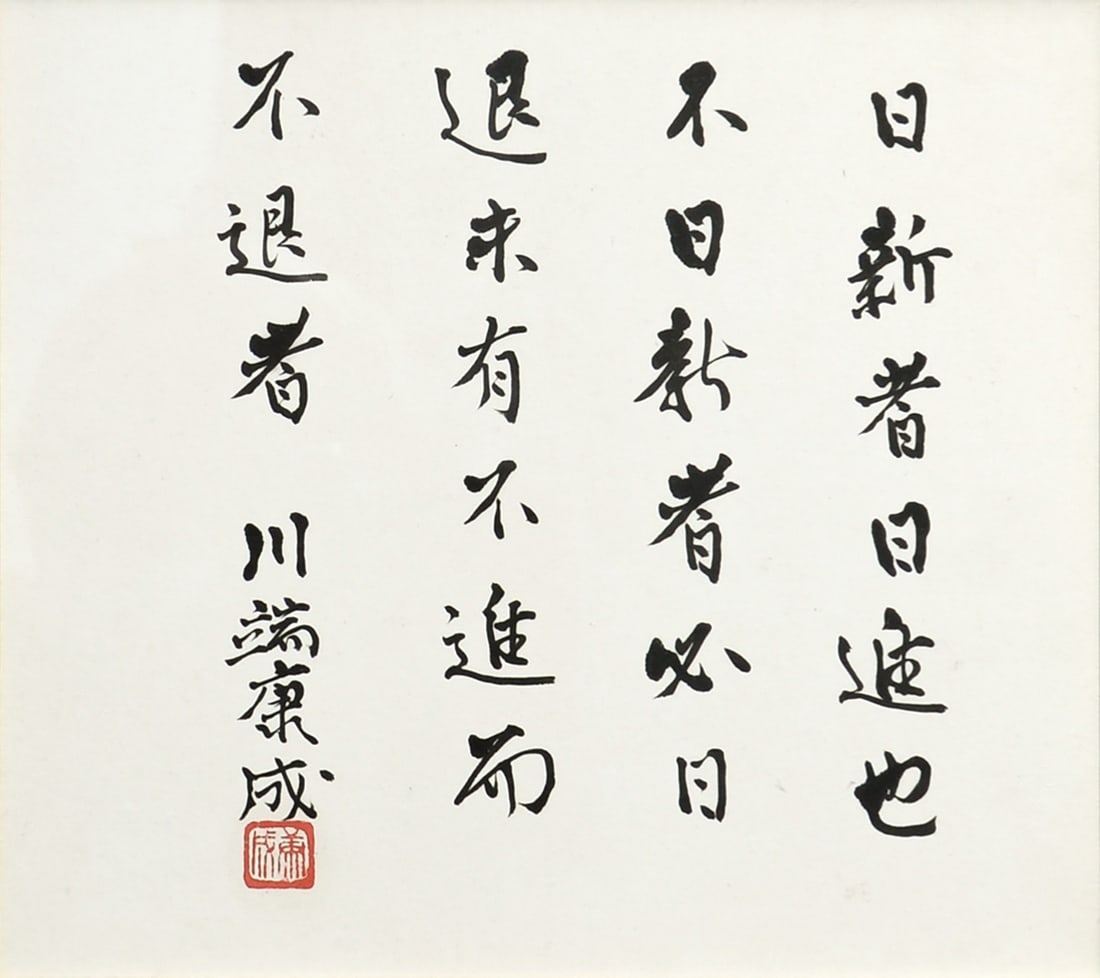 日新者日進也
不日新者必日
退未有不進而
不退者 川端康成
康成